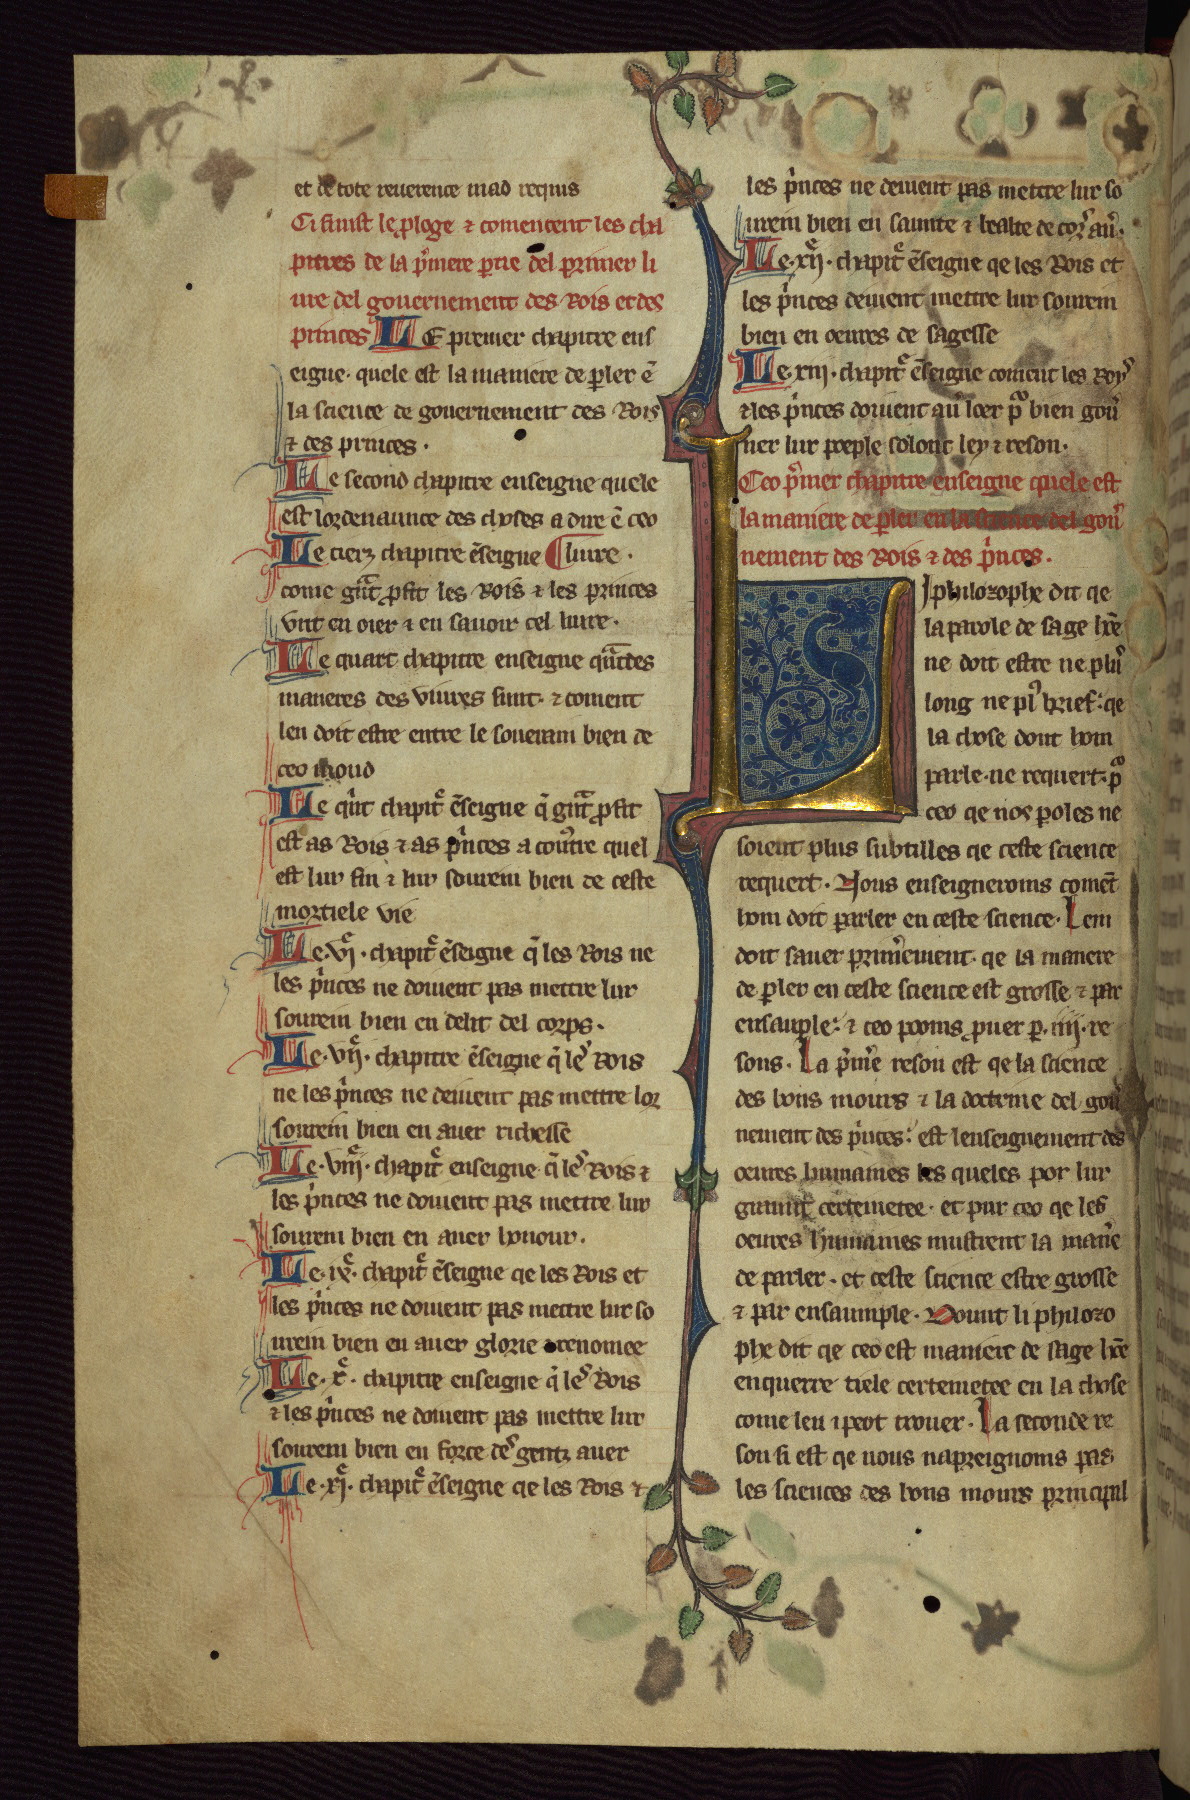 et de tote reuerence mad requis
Ci finist le ploge ⁊ comencent les cha
pitres de la pͥmere ptie del primer li
ure del gouernement des Rois et des
princes LE premer chapitre ens
eigne· quele est la maniere de pler ẽ
la science de gouernement des Rois
⁊ des princes·
Le second chapitre enseigne quele
est lordenaunce des choses a dire ẽ ceo
Le tierz chapitre ẽseigne ¶ liure·
come gñt pfit les Rois ⁊ les princes
vnt en oier ⁊ en sauoir cel liure·
Le quart chapitre enseigne qũtdes
maneres des viures sunt· ⁊ coment
len doit estre entre le souerain bien de
ceo mond
Le qͥnt chapitͬ ẽseigne q̃ gñt pfit
est as Rois ⁊ as pͥnces a conͦtre quel
est lur fin ⁊ lur sourein bien de ceste
mortiele vie
Le·vjͤ· chapitͬ ẽseigne q̃ les Rois ne
les pͥnces ne doiuent pas mettre lur
sourein bien en delit del corps·
Le·vijͤ· chapitre ẽseigne q̃ leˢ Rois
ne les pͥnces ne deiuent pas mettre lor
sourein bien en auer richesse
Le·viijͤ· chapitͬ enseigne q̃ leˢ Rois ⁊
les pͥnces ne doiuent pas mettre lur
sourein bien en auer honour·
Le·ixͤ· chapitͬ ẽseigne qe les Rois et
les pͥnces ne doiuent pas mettre lur so
urein bien en auer glorie ⁊ renomee
Le·xͤ· chapitre enseigne q̃ leˢ Rois
⁊ les pͥnces ne doiuent pas mettre lur
sourein bien en force deˢ gentz auer
Le·xjͤ· chapitͬ ẽseigne qe les Rois ⁊
les pͥnces ne deiuent pas mettre lur so
urein bien en sainte ⁊ bealte de corˢ au᷑·
Le·xijͤ· chapitͬ ẽseigne qe les Rois et
les pͥnces deiuent mettre lur sourein
bien en oeures de sagesse
Le·xiij· chapitͬ ẽseigne coment les Royˢ
⁊ les pͥnces doiuent au᷑ loer pͦ bien gou᷑
ner lur poeple solonc ley ⁊ reson·
Ceo pͥmer chapitre enseigne quele est
la maniere de pler en la science del gou᷑
nement des Rois ⁊ des pͥnces·
LI philozophe dit qe
la parole de sage hõe
ne doit estre ne plˢ
long ne plˢ brief: qe
la chose dont hom
parle· ne requert· pͦ
ceo qe nos poles ne
soient plus subtilles qe ceste science
requert· Nous enseigneroms comẽt
hom doit parler en ceste science· Lem
doit sauer primͥement· qe la manere
de pler en ceste science est grosse ⁊ par
ensauple: ⁊ ceo pooms puer p· iiij· re
sons· La pͥmͥe reson est qe la science
des bons mours ⁊ la doctrine del gou᷑
nement des pͥnces: est lenseignement des
oeures humaines les queles por lur
certeinetee· et pur ceo qe les
oeures humaines mustrent la manͥe
de parler· et ceste science estre grosse
⁊ par ensaumple· Dount li philozo
phe dit qe ceo est maniere de sage hõe
enquerre tiele certeinetee en la chose
come len i peot trouer· La seconde re
son si est qe nous napreignoms pas
les sciences des bons mours principal